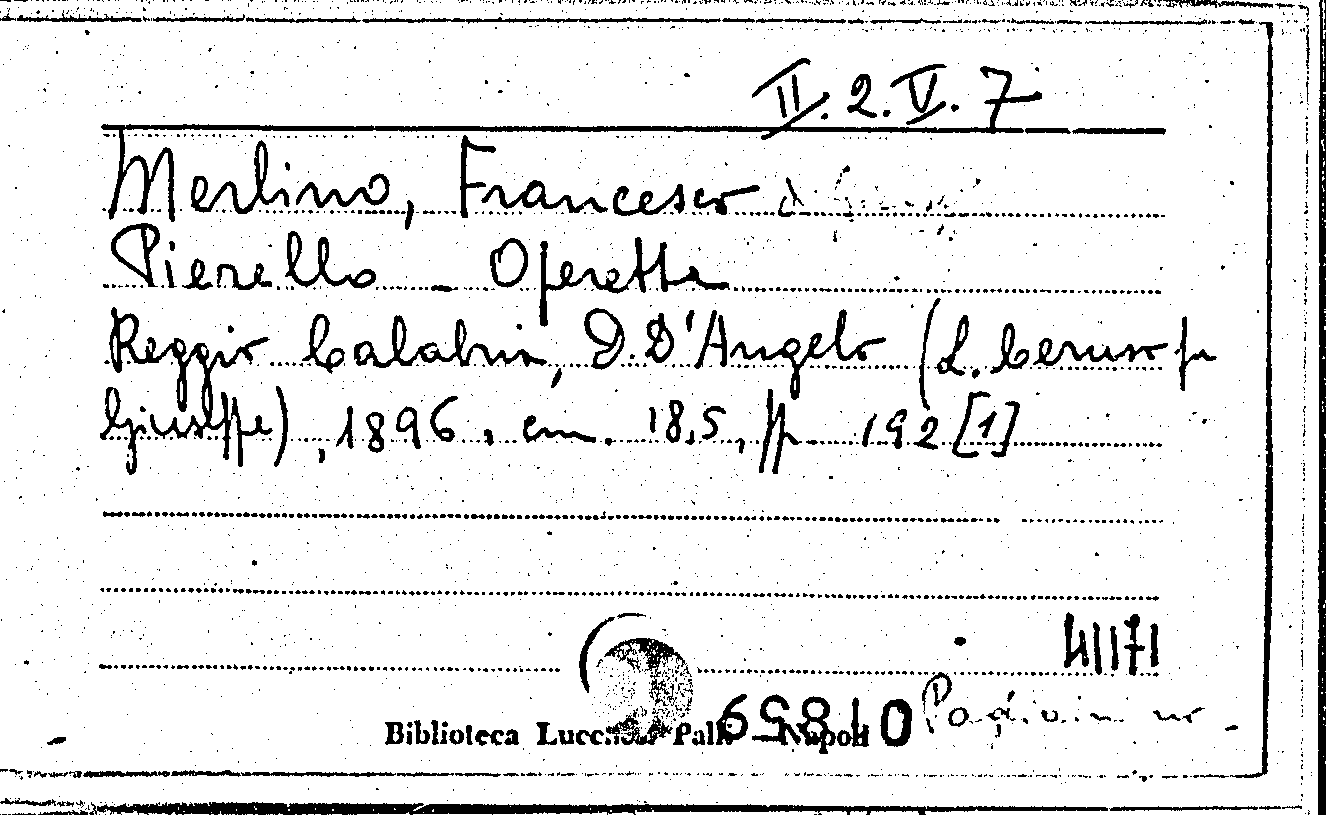 II. 2. V. 7
Merlino, Francesco di
Pierello - Operetta
Reggio Calabria, D. D'Angelo (L. Ceruso fu
Giuseppe), 1896, cm. 18,5, pp. 192 [1]
41171
Biblioteca Lucchesi Palli - Napoli